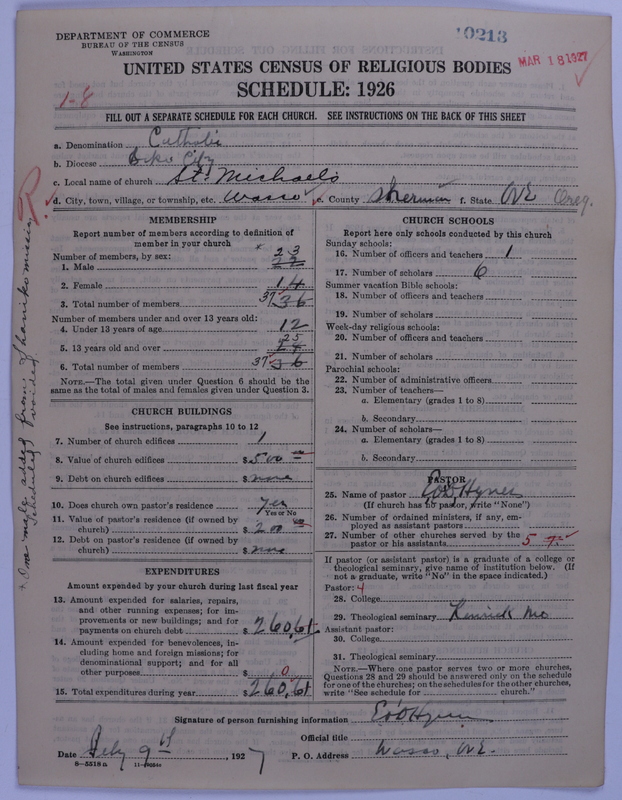 DEPARTMENT OF COMMERCE
BUREAU OF THE CENSUS
WASHINGTON
10213
MAR 18 1927
UNITED STATES CENSUS OF RELIGIOUS BODIES
SCHEDULE: 1926
1-8
FILL OUT A SEPARATE SCHEDULE FOR EACH CHURCH. SEE INSTRUCTIONS ON THE BACK OF THIS SHEET
a. Denomination Catholic
b. Diocese Baker City
c. Local name of church St. Michaels
d. City, town, village, or township, etc. Wasco e. County Sherman f. State Ore Oreg.
MEMBERSHIP
Report number of members according to definition of member in your church
Number of members, by sex:
1. Male * 23 22
2. Female 14
3. Total number of members 37 36
Number of members under and over 13 years old:
4. Under 13 years of age 12
5. 13 years old and over 25 24
6. Total number of members 37 36
NOTE.—The total given under Question 6 should be the same as the total of males and females given under Question 3.
CHURCH BUILDINGS
See instructions, paragraphs 10 to 12
7. Number of church edifices 1
8. Value of church edifices $500
9. Debt on church edifices $ none
10. Does church own pastor's residence? yes
Yes or No
11. Value of pastor's residence (if owned by church) $200
12. Debt on pastor's residence (if owned by church) $ none
EXPENDITURES
Amount expended by your church during last fiscal year
13. Amount expended for salaries, repairs, and other running expenses; for improvements or new buildings; and for payments on church debt $260.61
14. Amount expended for benevolences, including home and foreign missions; for denominational support; and for all other purposes $ 0
15. Total expenditures during year $260.61
* One male added from Shaniko mission
Schedule voided
CHURCH SCHOOLS
Report here only schools conducted by this church
Sunday schools:
16. Number of officers and teachers 1
17. Number of scholars 6
Summer vacation Bible schools:
18. Number of officers and teachers
19. Number of scholars
Week-day religious schools:
20. Number of officers and teachers
21. Number of scholars
Parochial schools:
22. Number of administrative officers
23. Number of teachers—
a. Elementary (grades 1 to 8)
b. Secondary
24. Number of scholars—
a. Elementary (grades 1 to 8)
b. Secondary
PASTOR
25. Name of pastor
(If church has no pastor, write "None")
26. Number of ordained ministers, if any, employed as assistant pastors
27. Number of other churches served by the pastor or his assistants 5
If pastor (or assistant pastor) is a graduate of a college or theological seminary, give name of institution below. (If not a graduate, write "No" in the space indicated.)
Pastor: 4
28. College
29. Theological seminary Kenrick Mo
Assistant pastor:
30. College
31. Theological seminary
NOTE.—Where one pastor serves two or more churches, Questions 28 and 29 should be answered only on the schedule for one of the churches; on the schedules for the other churches, write "See schedule for church."
Signature of person furnishing information
Official title
Date July 9th, 1927
P. O. Address Wasco, Ore.
8-5518 a